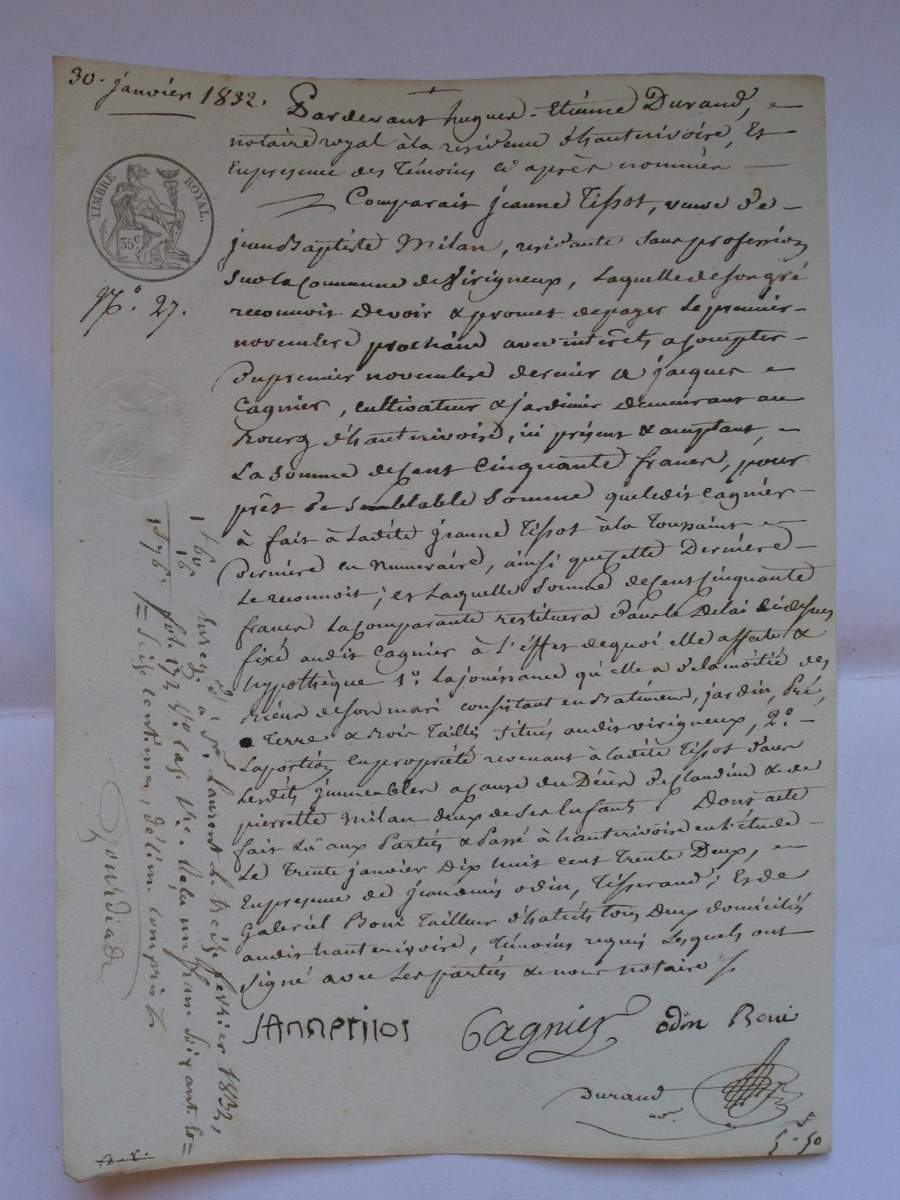 30. janvier 1832.
TIMBRE ROYAL.
35 c
N.o 27.
Pardevant hugues-Etienne Durand,
notaire royal à la residence d'hauterivoire, Et
En presence des Témoins ci après nommés
Comparait jeanne Tissot, veuve de
jean Baptiste Milan, residante sans profession
sur la Commune de Virigneux, Laquelle de son gré
reconnoit devoir & promet de payer Le premier
novembre prochain avec interêts a compter
du premier novembre dernier à jacques
Cagnier, cultivateur & jardinier demeurant au
Bourg d'hauterivoire, ici présent & acceptant,
La somme de Cent Cinquante francs, pour
prêt de semblable somme que ledit Cagnier
à fait à Ladite jeanne Tissot à la Toussaint
Derniere en Numeraire, ainsi que cette Derniere
Le reconnoit; et Laquelle somme de Cent Cinquante
francs La comparante restituera dans le Delai ci dessus
fixé audit Cagnier à L'effet de quoi elle affecte &
hypothèque 1.o La jouissance qu'elle a de la moitié des
Biens de son mari consistant en Batiment, jardin, Pré,
Terre & Bois Taillis situés audit virigneux, 2.o
La portion en propriété revenant à Ladite Tissot dans
Lesdits jmmeubles a cause du Décès de Claudine & de
pierrette Milan deux de ses Enfants. Dont acte
fait Lû aux Parties & Passé à hauterivoire en L'étude
Le Trente janvier Dix huit cent Trente Deux,
En presence de jean denis odin, Tisserand; Et de
Gabriel Boni Tailleur d'habits tous deux domiciliés
audit hauterivoire, Témoins requis Lesquels ont
signé avec Les parties & nous notaire
jAnnetisot
Cagnier
odin Boni
Durand
no.re
5-50
1 60
16
1 f 76
Enreg. à S.t Laurent Le treize fevrier 1832,
fol. 172 V.o Cas. reçu un franc soixante
seize Centimes, décime compris